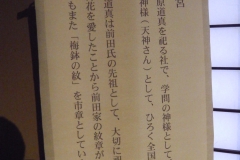 宮
原道真を祀る社で、学問の神様として
神様（天神さん）として、ひろく全国
道真は前田氏の先祖として、大切に
花を愛したことから前田家の紋章が
もまた「梅鉢の紋」を市章としてい